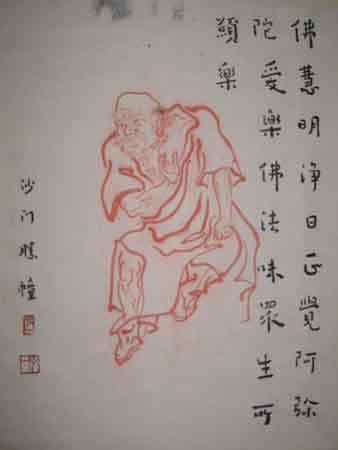 佛慧明淨日正覺阿弥
陀愛樂佛法味眾生所
願樂
沙门勝幢